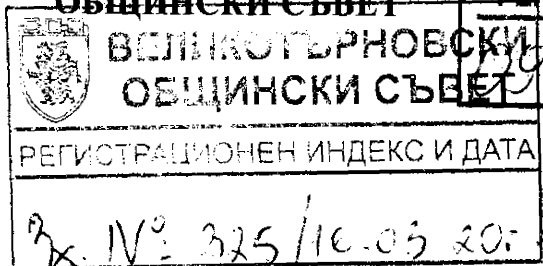 ОБЩИНСКИ СЪВЕТ
ВЕЛИКОТЪРНОВСКИ
ОБЩИНСКИ СЪВЕТ
РЕГИСТРАЦИОНЕН ИНДЕКС И ДАТА
Вх. № 325/16.03 20г.